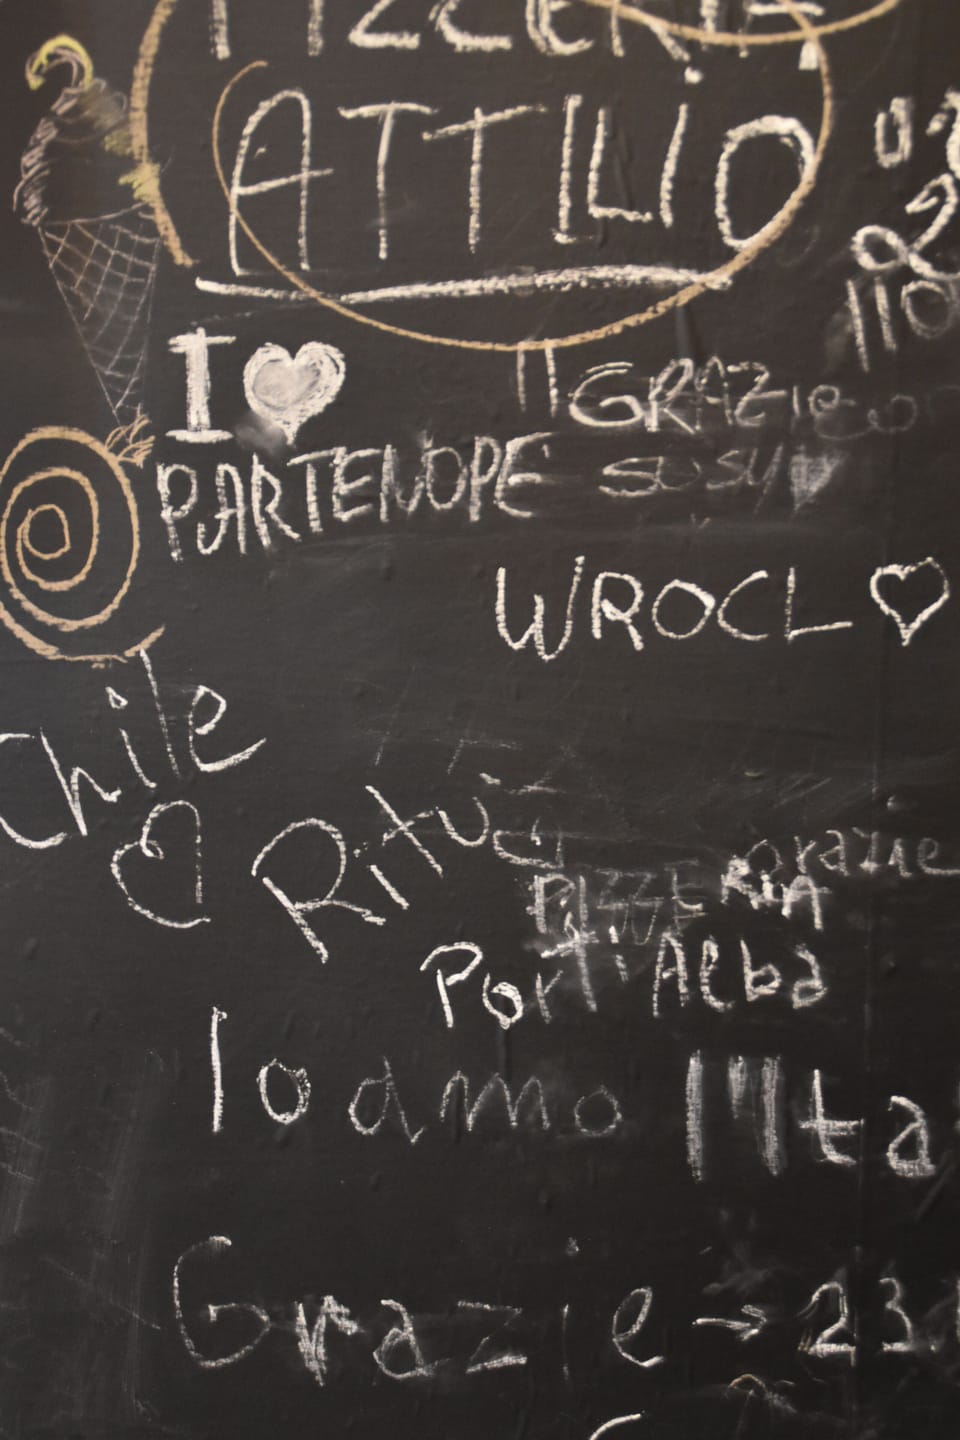 PIZZERIA
ATTILIO
I
GRAZie
PARTENOPE
SUSY
WROCL
Chile
Ritu
grazie
PIZZERIA
Port'Alba
Io amo
Grazie → 23